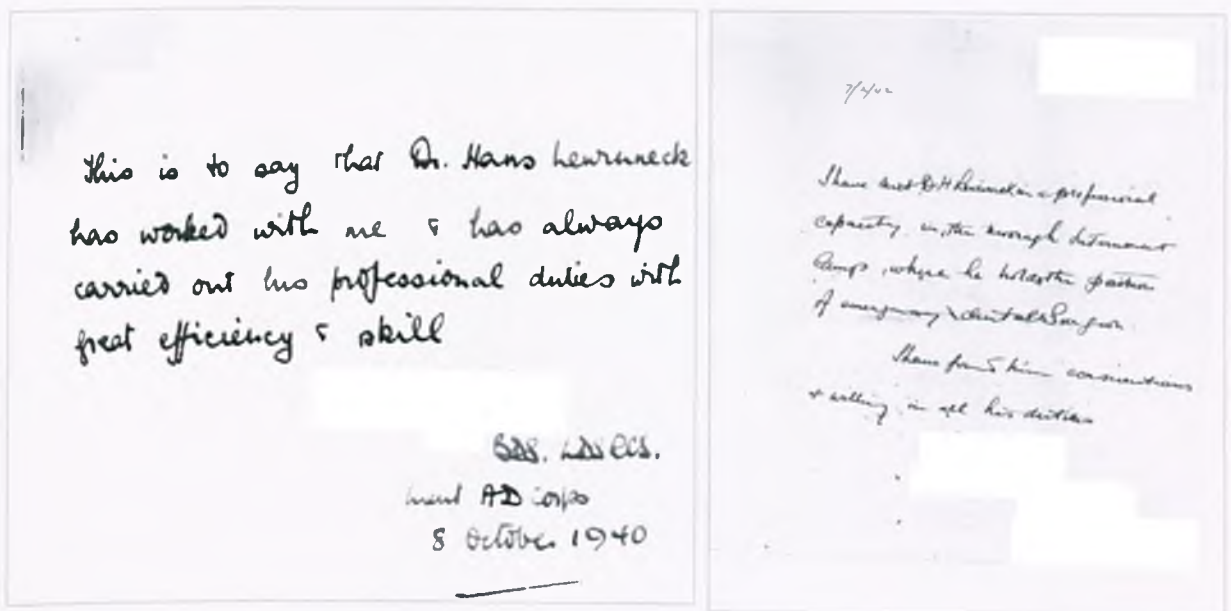 This is to say that Dr. Hans
has worked with me & has always
carried out his professional duties with
great efficiency & skill
BDS. LDS RCS.
Lieut AD Corps
8 October 1940
I have met Dr H in a professional
capacity in the internment
Camps, where he holds the position
of emergency dental Surgeon.
I have found him conscientious
& willing in all his duties